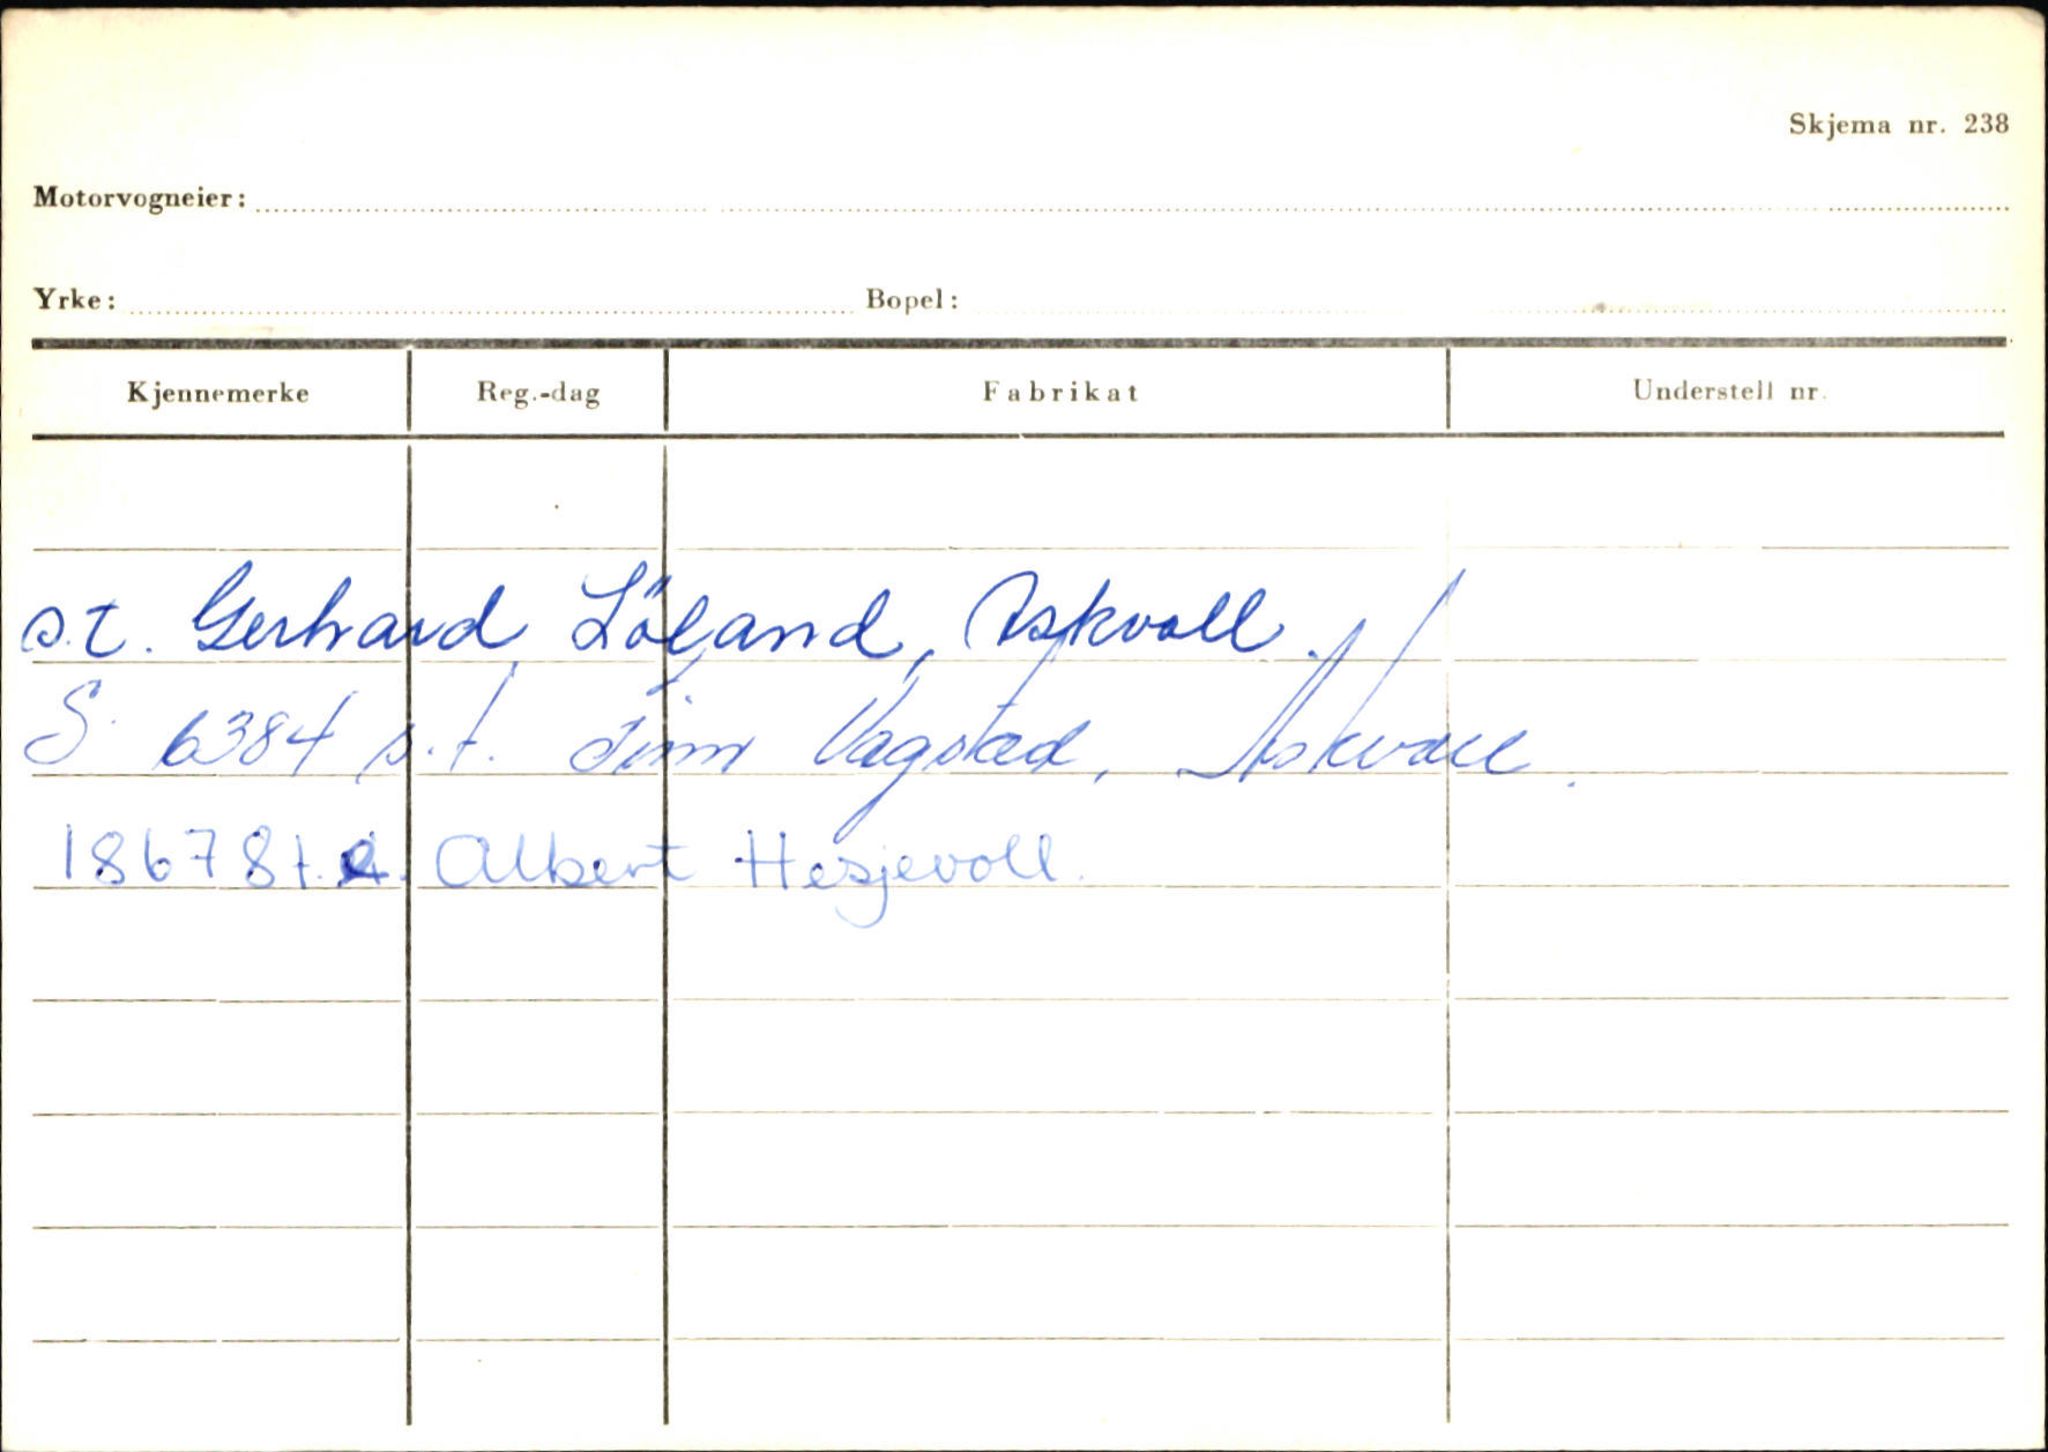 Skjema nr. 238
Motorvogneier:
Yrke: Bopel:
Kjennemerke Reg.-dag Fabrikat Understell nr.
s.t. Gerhard Löland, Askvoll.
S. 6384 s.t. Finn Vagstad, Askvoll.
186781. Albert Hesjevoll.